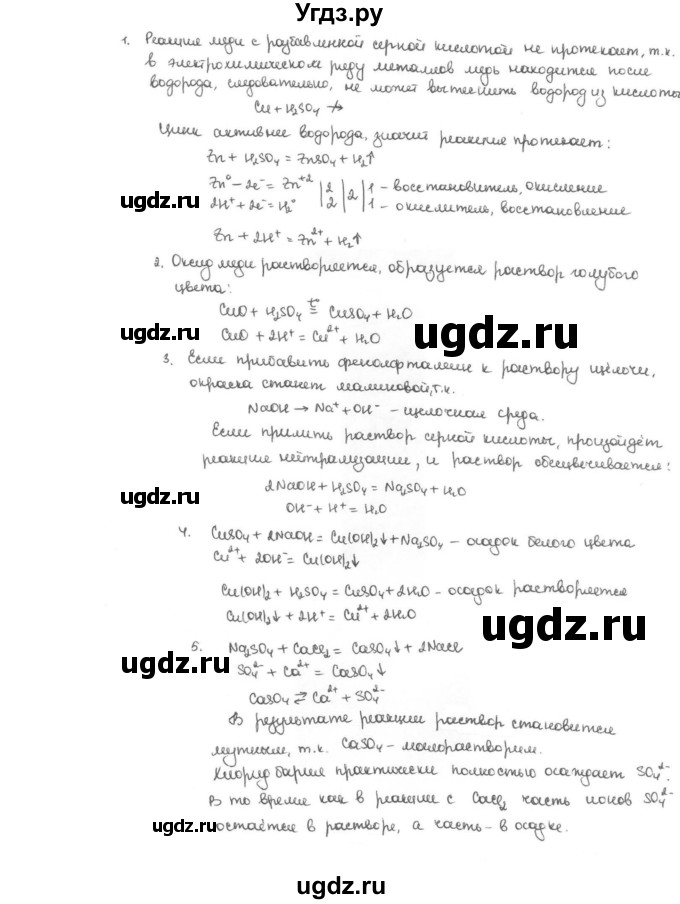 Угдз.ру
1. Реакция меди с разбавленной серной кислотой не протекает, т.к.
в электрохимическом ряду металлов медь находится после
водорода, следовательно, не может вытеснить водород из кислоты
Cu + H₂SO₄ ↛
Цинк активнее водорода, значит реакция протекает:
Zn + H₂SO₄ = ZnSO₄ + H₂↑
Zn⁰ – 2e⁻ = Zn⁺² | 2 | 2 | 1 – восстановитель, окисление
2H⁺ + 2e⁻ = H₂⁰ | 2 | | 1 – окислитель, восстановление
ugdz.ru
Zn + 2H⁺ = Zn²⁺ + H₂↑
2. Оксид меди растворяется, образуется раствор голубого
цвета:
CuO + H₂SO₄ =ᵗ° CuSO₄ + H₂O
CuO + 2H⁺ = Cu²⁺ + H₂O
ugdz.ru
ugdz.ru
3. Если прибавить фенолфталеин к раствору щёлочи,
окраска станет малиновой, т.к.
NaOH → Na⁺ + OH⁻ – щелочная среда.
Если прилить раствор серной кислоты, произойдёт
реакция нейтрализации, и раствор обесцвечивается:
2NaOH + H₂SO₄ = Na₂SO₄ + H₂O
ugdz.ru
OH⁻ + H⁺ = H₂O
4. CuSO₄ + 2NaOH = Cu(OH)₂↓ + Na₂SO₄ – осадок белого цвета
Cu²⁺ + 2OH⁻ = Cu(OH)₂↓
ugdz.ru
Cu(OH)₂ + H₂SO₄ = CuSO₄ + 2H₂O – осадок растворяется
Cu(OH)₂↓ + 2H⁺ = Cu²⁺ + 2H₂O
ugdz.ru
5. Na₂SO₄ + CaCl₂ = CaSO₄↓ + 2NaCl
ugdz.ru
SO₄²⁻ + Ca²⁺ = CaSO₄↓
CaSO₄ ⇄ Ca²⁺ + SO₄²⁻
В результате реакции раствор становится
мутным, т.к. CaSO₄ – малорастворим.
Хлорид бария практически полностью осаждает SO₄²⁻.
В то время как в реакции с CaCl₂ часть ионов SO₄²⁻
остаётся в растворе, а часть – в осадке.
ugdz.ru
ugdz.ru